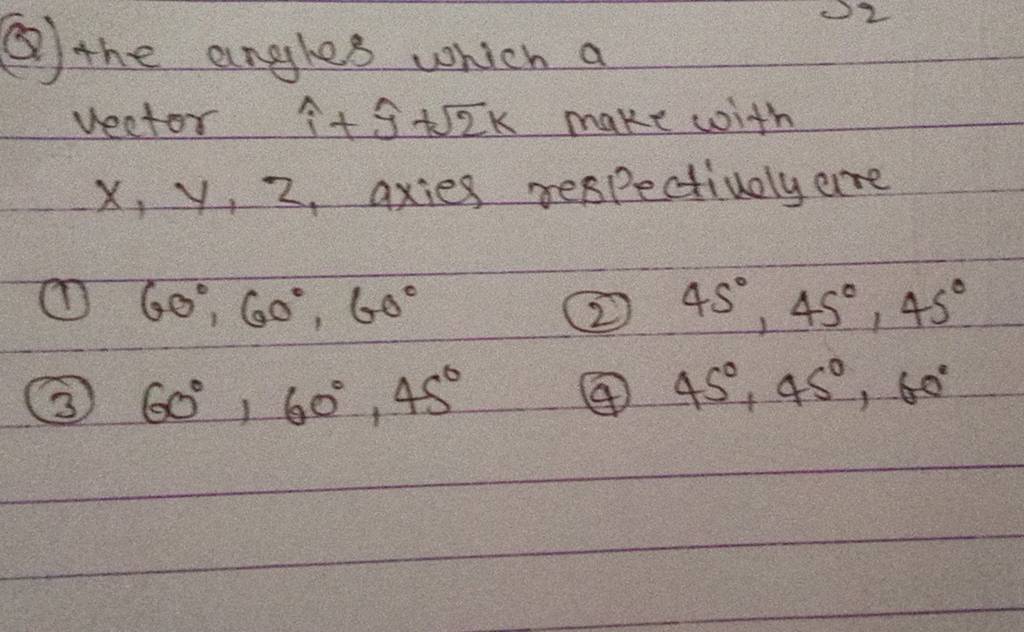 Q) the angles which a
vector î + ĵ + √2k make with
x, y, z, axies respectively are
① 60°, 60°, 60° ② 45°, 45°, 45°
③ 60°, 60°, 45° ④ 45°, 45°, 60°